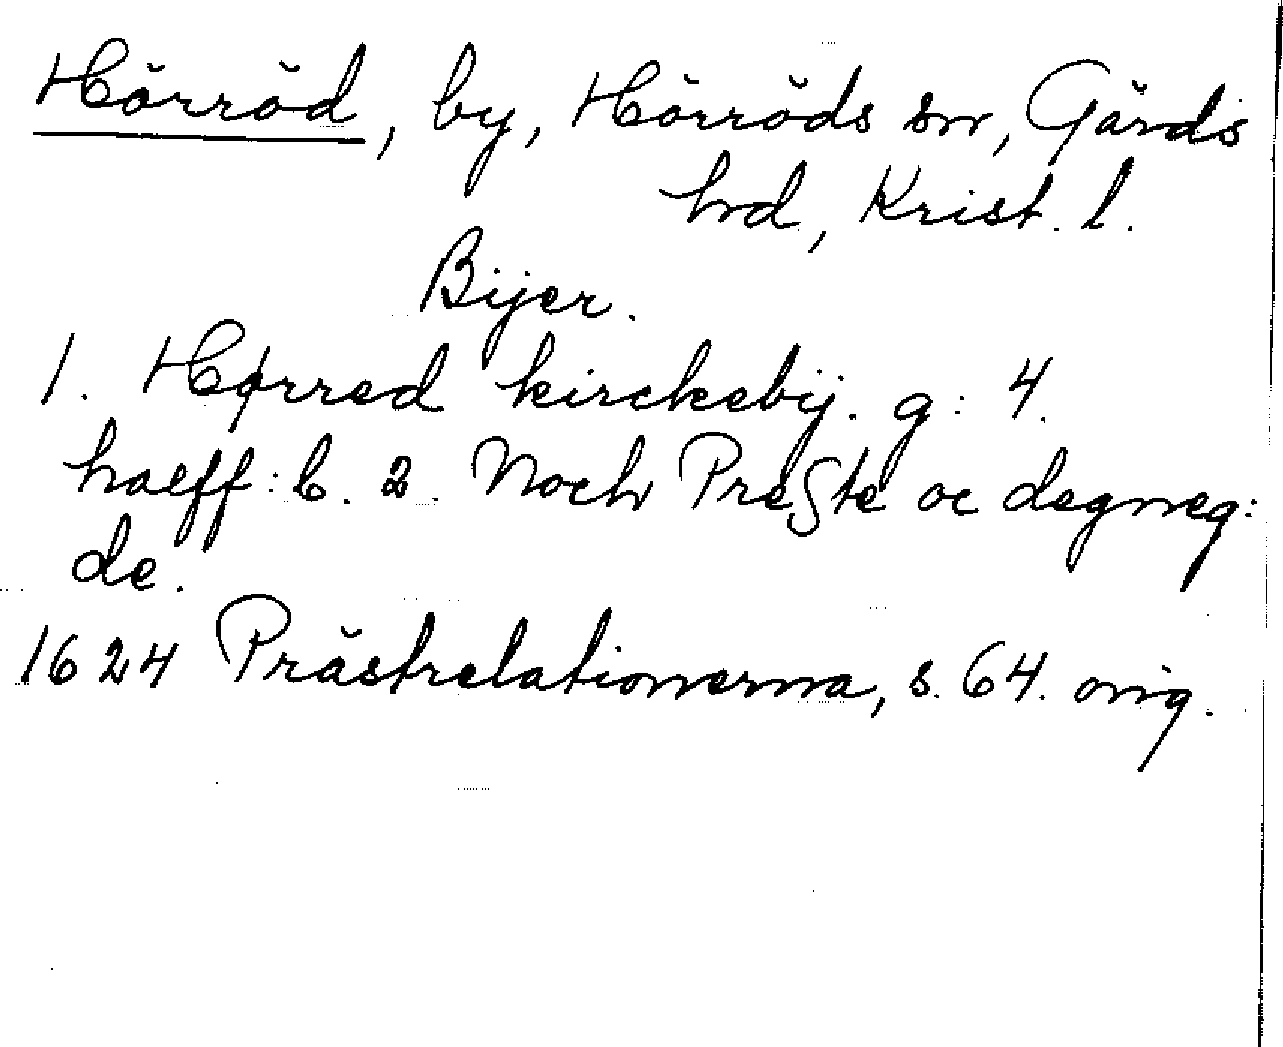 Hörröd, by, Hörröds sn, Gärds
hrd, Krist. l.
Bijer.
1. Hørred kirckebij. g: 4.
halff: b. 2. Noch Preste oc degneg:
de.
1624 Prästrelationerna, s. 64. orig.